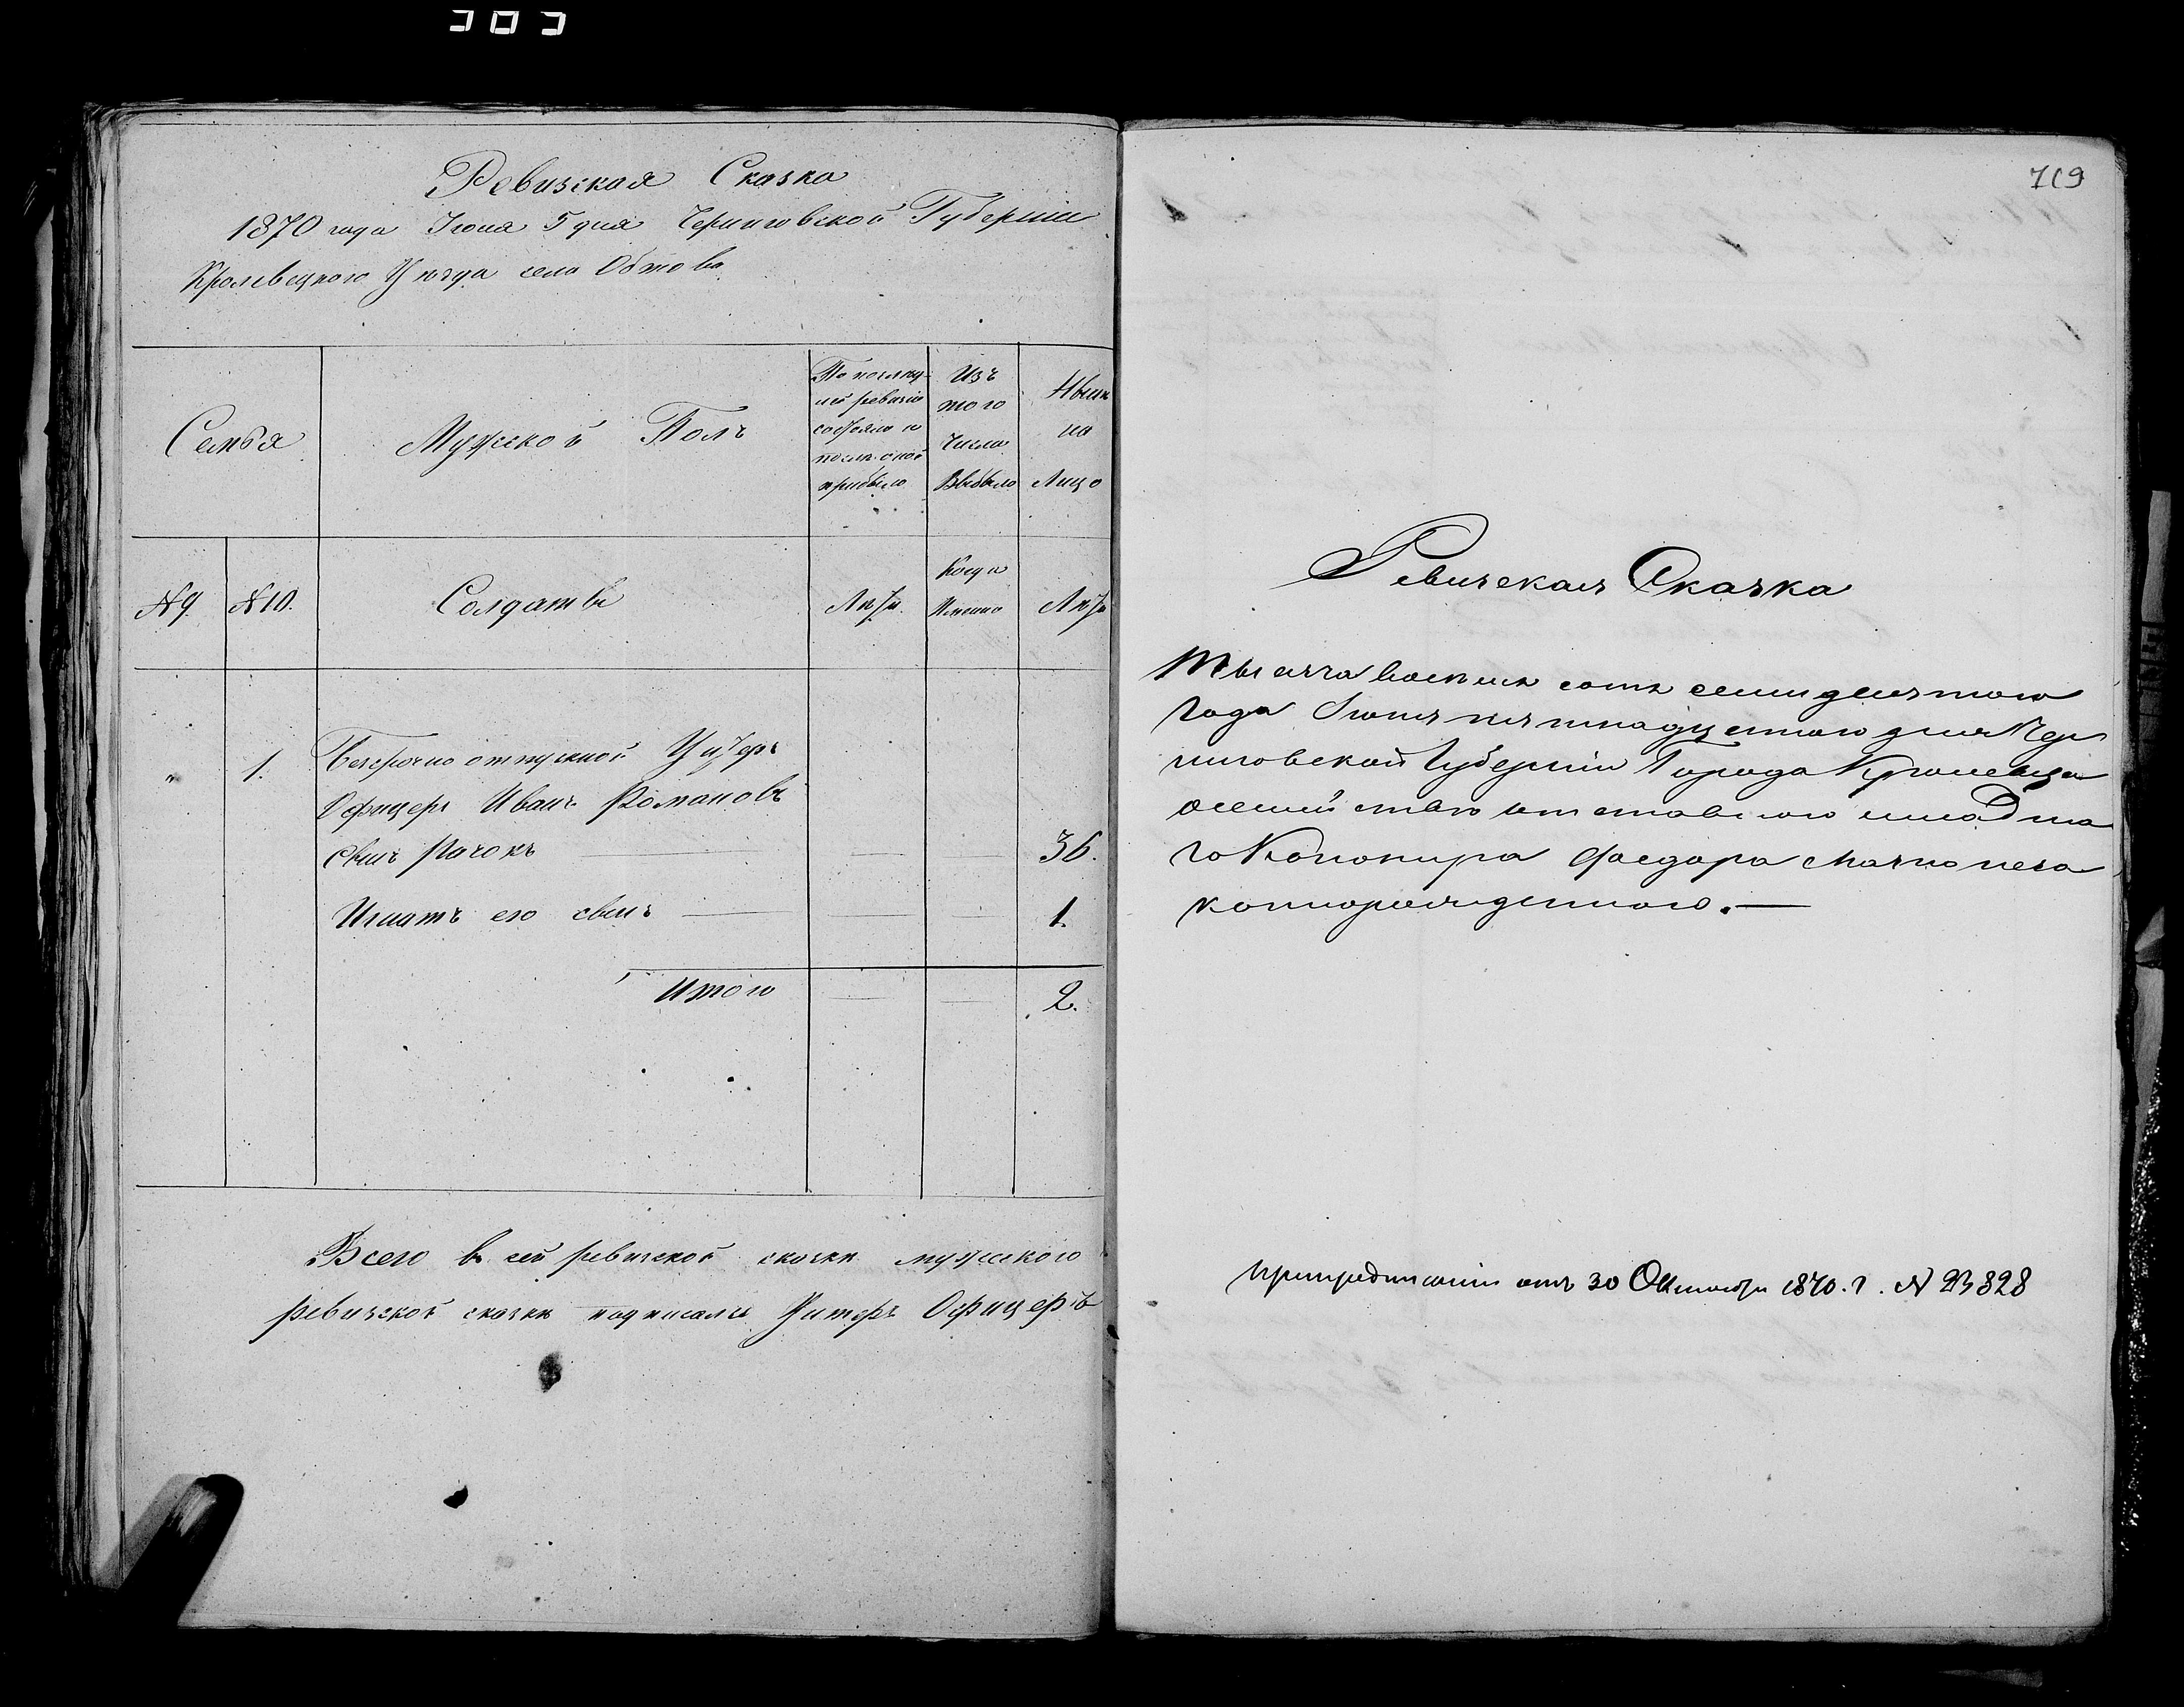 Ревизская Сказка
1870 года Іюня 5 дня Черниговской Губерніи
Кролевецкого Уѣзда села Обтова
Семья
Мужской Полъ
По послѣд-
ней ревизіи
состояло и
послѣ оной
прибыло
Изъ
того
Числа
Выбыло
Нынѣ
на
Лицо
№ 9
№ 10.
Солдаты
Лѣта
Когда
Именно
Лѣта
" 1. Безсрочно отпускной Унтеръ
Офицеръ Иванъ Романовъ
сынъ Рачокъ 36.
Игнатъ его сынъ 1.
Итого 2.
Всего в сей ревизской сказки мужского
ревизской сказкѣ подписалъ Унтеръ Офицеръ
719
Ревизская Сказка
Тысяча восемь сотъ семидесятого
года Іюня пятнадцатого дня Чер
ниговской Губерніи Города Кролевца
осемействѣ отставного младша
го Канонира Федора
При предписаніи отъ 30 Октября 1870. г. № 23828